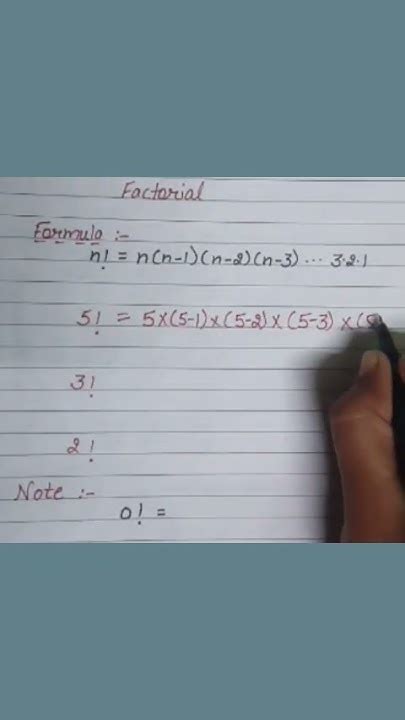 Factorial
Formula :-
n! = n(n-1)(n-2)(n-3) ... 3.2.1
5! = 5×(5-1)×(5-2)×(5-3)×(5
3!
2!
Note :-
0! =